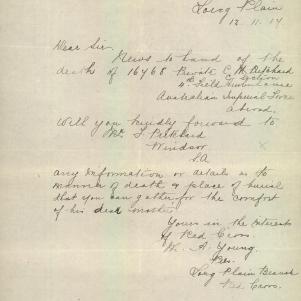 Long Plain
12.11.17
Dear Sir
News to hand of the
death of 16468 Private C. H. Pritchard
C Section
4th Field Ambulance
Australian Imperial Force
abroad.
Will you kindly forward to
Mr. J Pritchard
Windsor
SA
any information or details as to
manner of death & place of burial
that you can gather for the comfort
of his dear mother.
Yours in the interests
of Red Cross.
A. Young.
Pres.
Long Plain Branch
Red Cross.